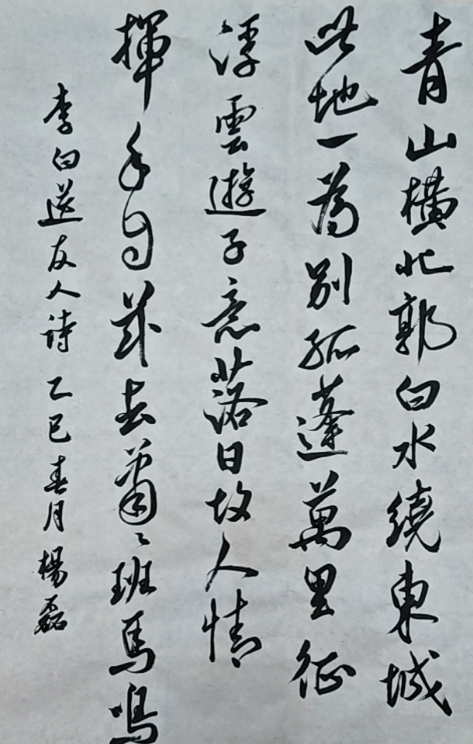 青山橫北郭白水繞東城
此地一為別孤蓬萬里征
浮雲遊子意落日故人情
揮手自茲去蕭〻班馬鳴
李白送友人詩乙巳春月楊磊